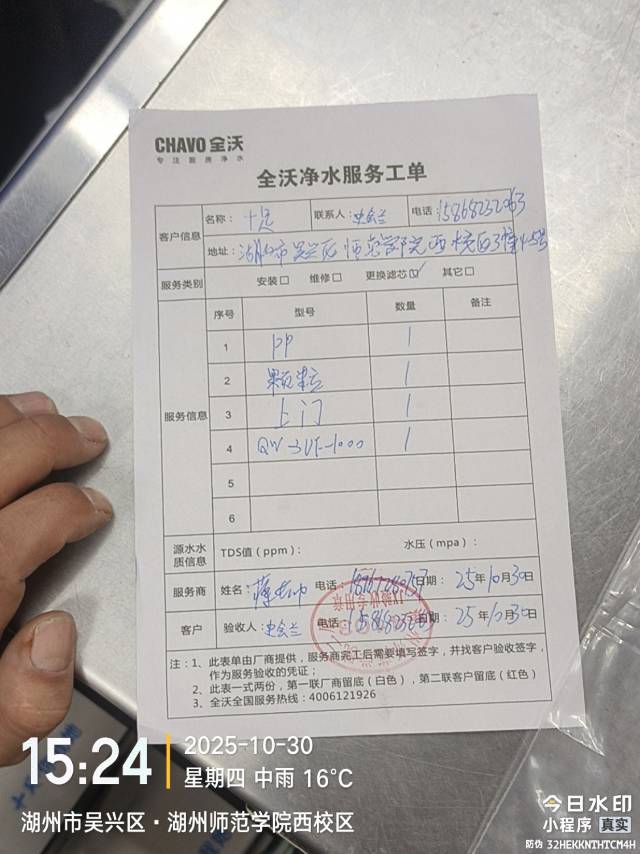 CHAVO 全沃
专注厨房净水
全沃净水服务工单
客户信息 名称： 联系人：史会兰 电话：
地址：湖州市吴兴区师范学院西校区
服务类别 安装□ 维修□ 更换滤芯☑ 其它□
服务信息 序号 型号 数量 备注
1 PP 1
2 颗粒 1
3 上门 1
4 QW-3UF-1000 1
5
6
源水水质信息 TDS值（ppm）： 水压（mpa）：
服务商 姓名： 电话： 日期：25年10月30日
客户 验收人：史会兰 电话： 日期：25年10月30日
注：1、此表单由厂商提供，服务商完工后需要填写签字，并找客户验收签字，
作为服务验收的凭证；
2、此表一式两份，第一联厂商留底（白色），第二联客户留底（红色）
3、全沃全国服务热线：4006121926
15:24
2025-10-30
星期四 中雨 16°C
湖州市吴兴区·湖州师范学院西校区
今日水印
小程序 真实
防伪 32HEKKNTHTCM4H